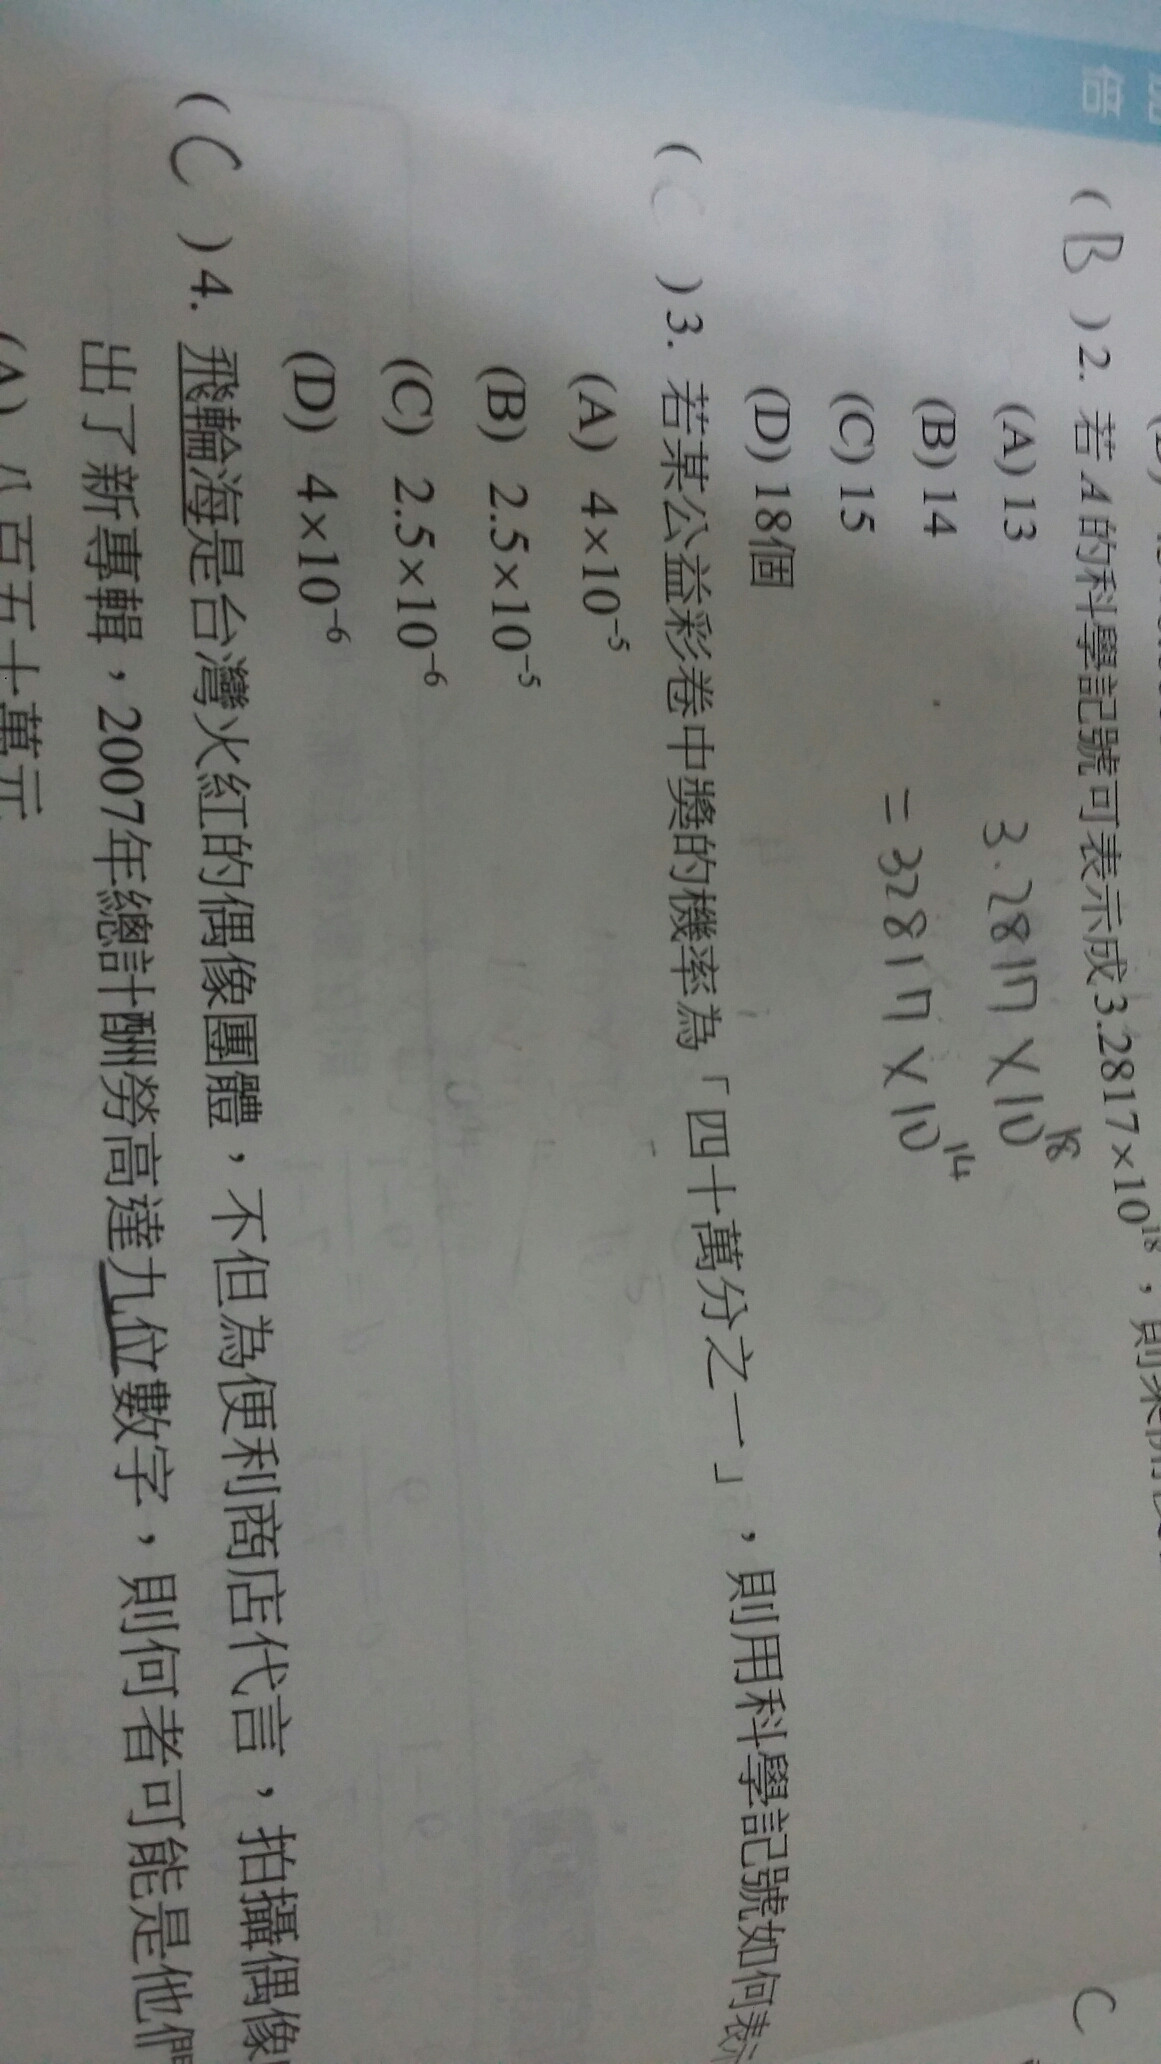 倍
( B ) 2. 若A的科學記號可表示成3.2817×10¹⁸，則
(A) 13
(B) 14
(C) 15
(D) 18個
3.2817×10¹⁸
=32817×10¹⁴
( C ) 3. 若某公益彩卷中獎的機率為「四十萬分之一」，則用科學記號如何表
(A) 4×10⁻⁵
(B) 2.5×10⁻⁵
(C) 2.5×10⁻⁶
(D) 4×10⁻⁶
( C ) 4. 飛輪海是台灣火紅的偶像團體，不但為便利商店代言，拍攝偶像
出了新專輯，2007年總計酬勞高達九位數字，則何者可能是他們
(A) 八百五十萬元
C